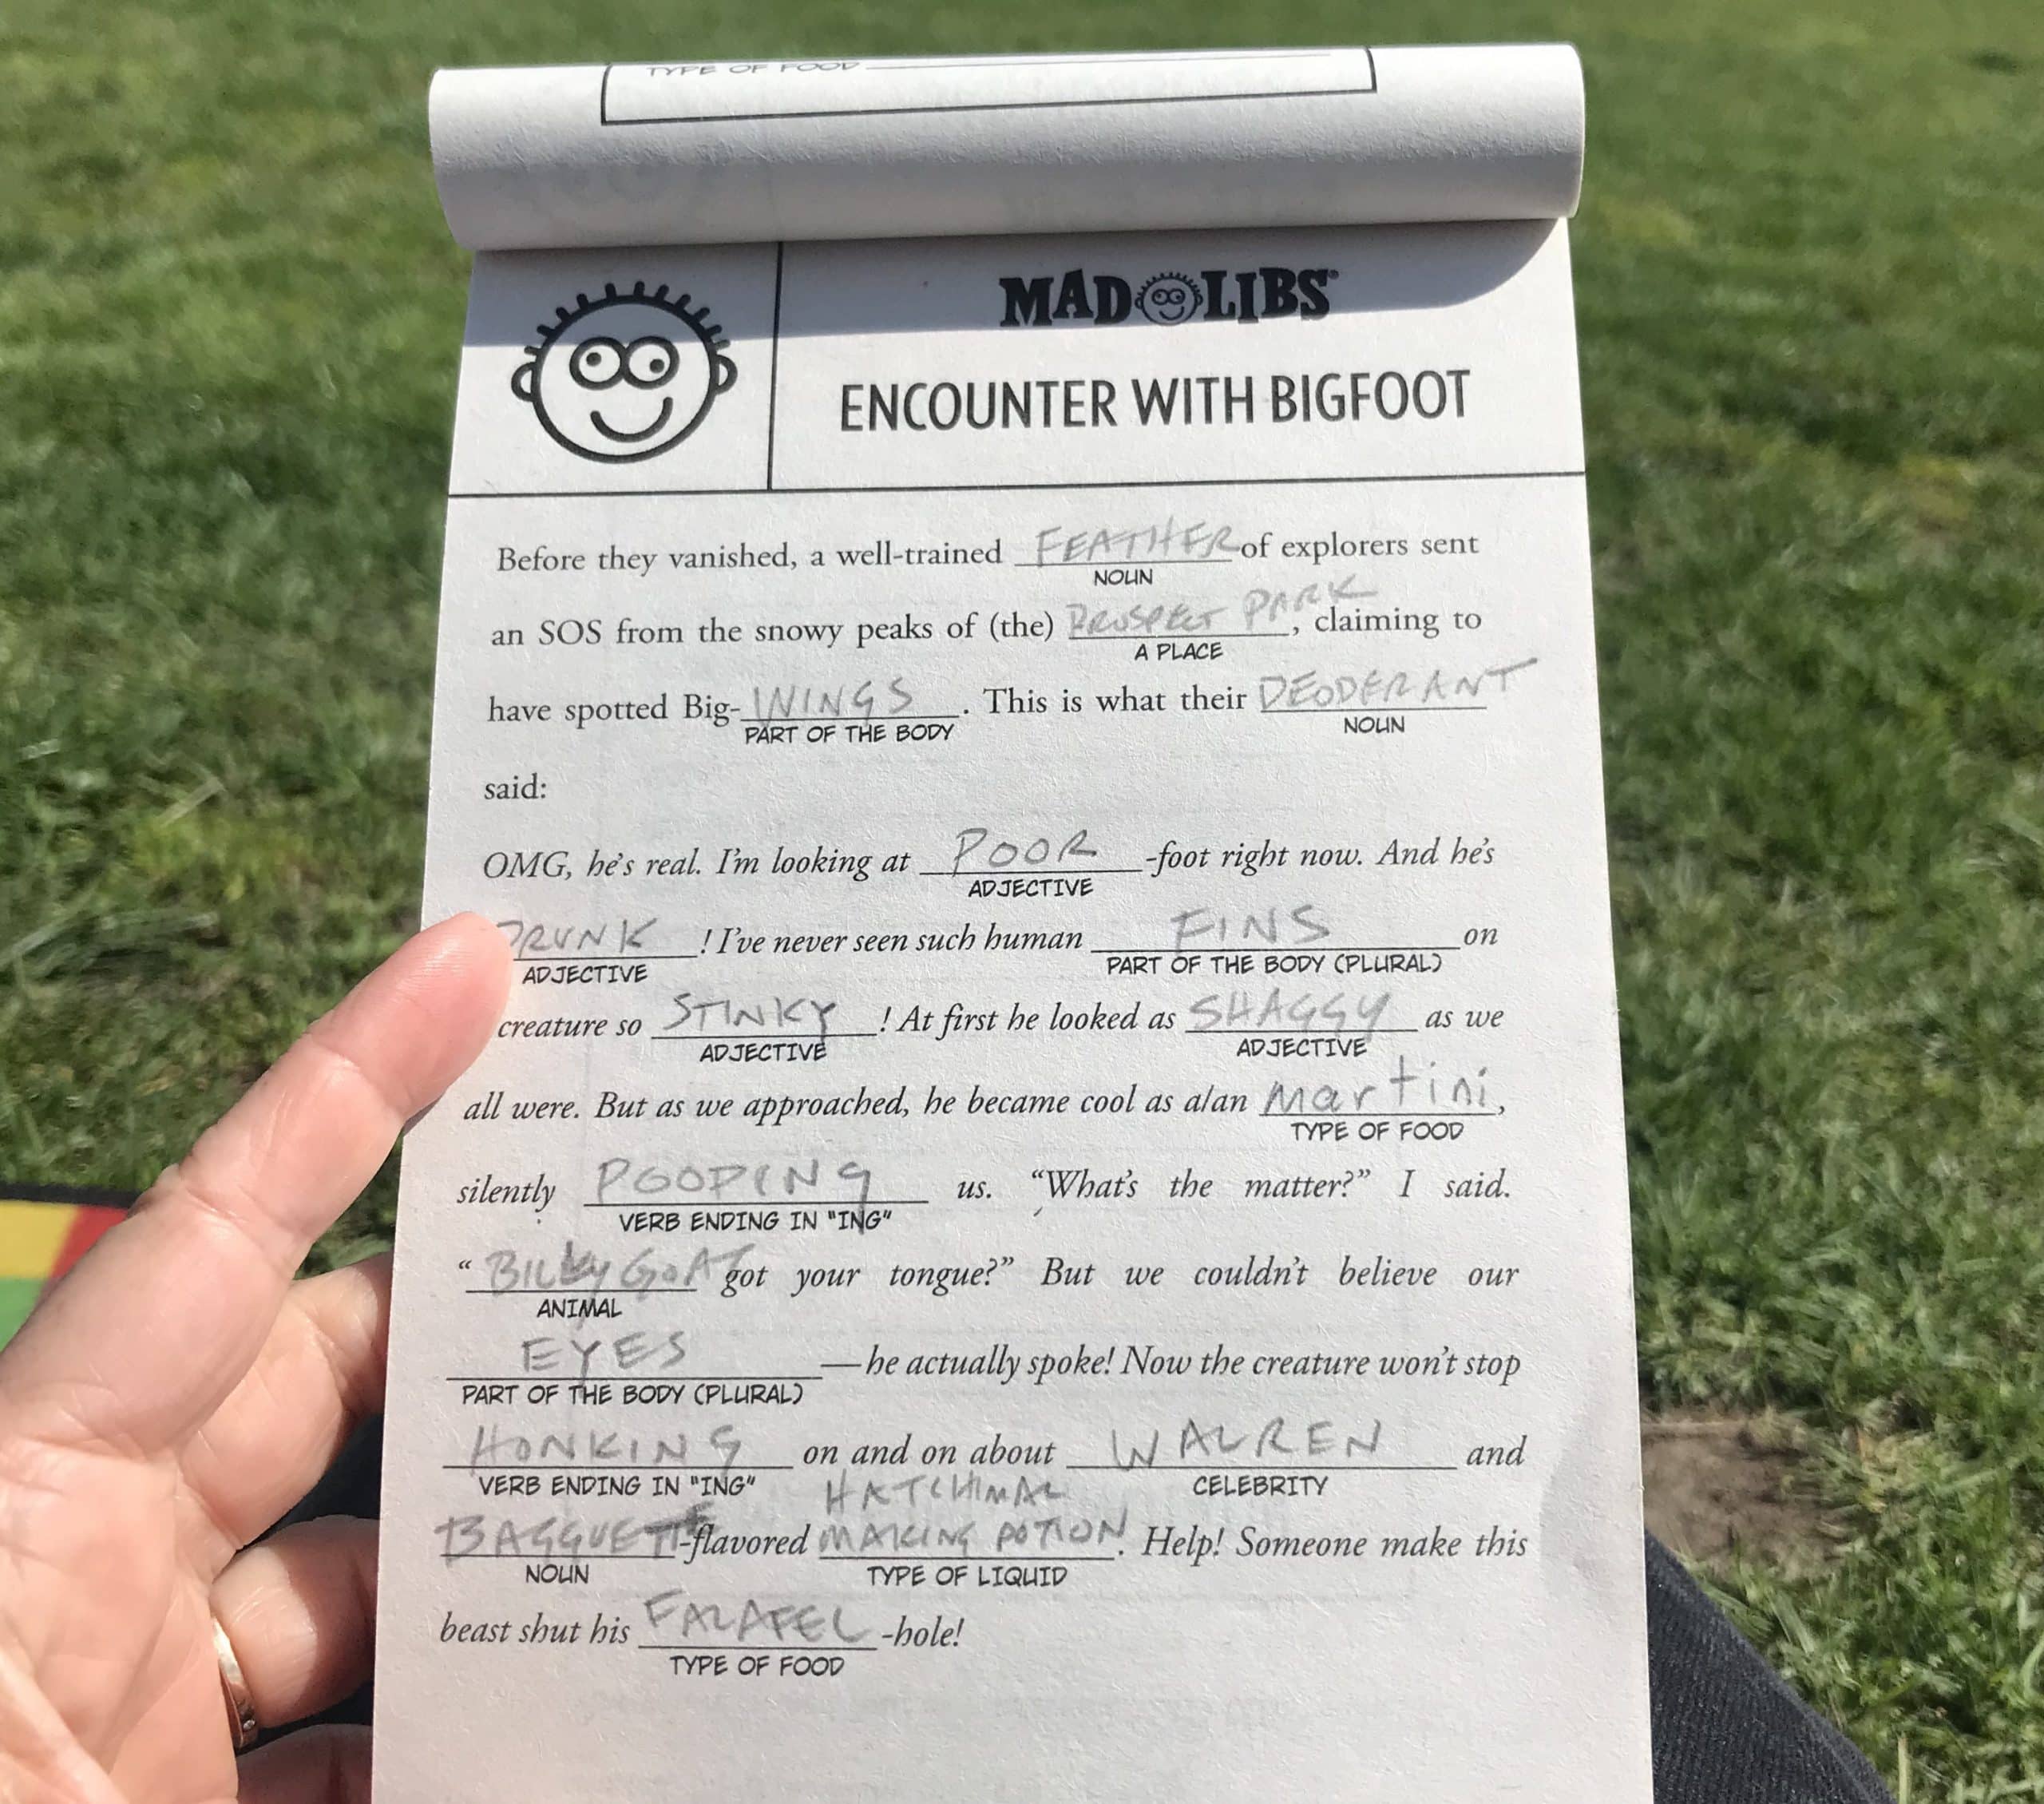 TYPE OF FOOD
MAD LIBS®
ENCOUNTER WITH BIGFOOT
Before they vanished, a well-trained FEATHER of explorers sent
NOUN
an SOS from the snowy peaks of (the) PROSPECT PARK, claiming to
A PLACE
have spotted Big-WINGS. This is what their DEODERANT
PART OF THE BODY NOUN
said:
OMG, he's real. I'm looking at POOR-foot right now. And he's
ADJECTIVE
DRUNK! I've never seen such human FINS on
ADJECTIVE PART OF THE BODY (PLURAL)
creature so STINKY! At first he looked as SHAGGY as we
ADJECTIVE ADJECTIVE
all were. But as we approached, he became cool as a/an martini,
TYPE OF FOOD
silently POOPING us. "What's the matter?" I said.
VERB ENDING IN "ING"
"BILLY GOAT got your tongue?" But we couldn't believe our
ANIMAL
EYES—he actually spoke! Now the creature won't stop
PART OF THE BODY (PLURAL)
HONKING on and on about WAUREN and
VERB ENDING IN "ING" CELEBRITY
HATCHIMAL
BAGGUETTE-flavored MAKING POTION. Help! Someone make this
NOUN TYPE OF LIQUID
beast shut his FALAFEL-hole!
TYPE OF FOOD